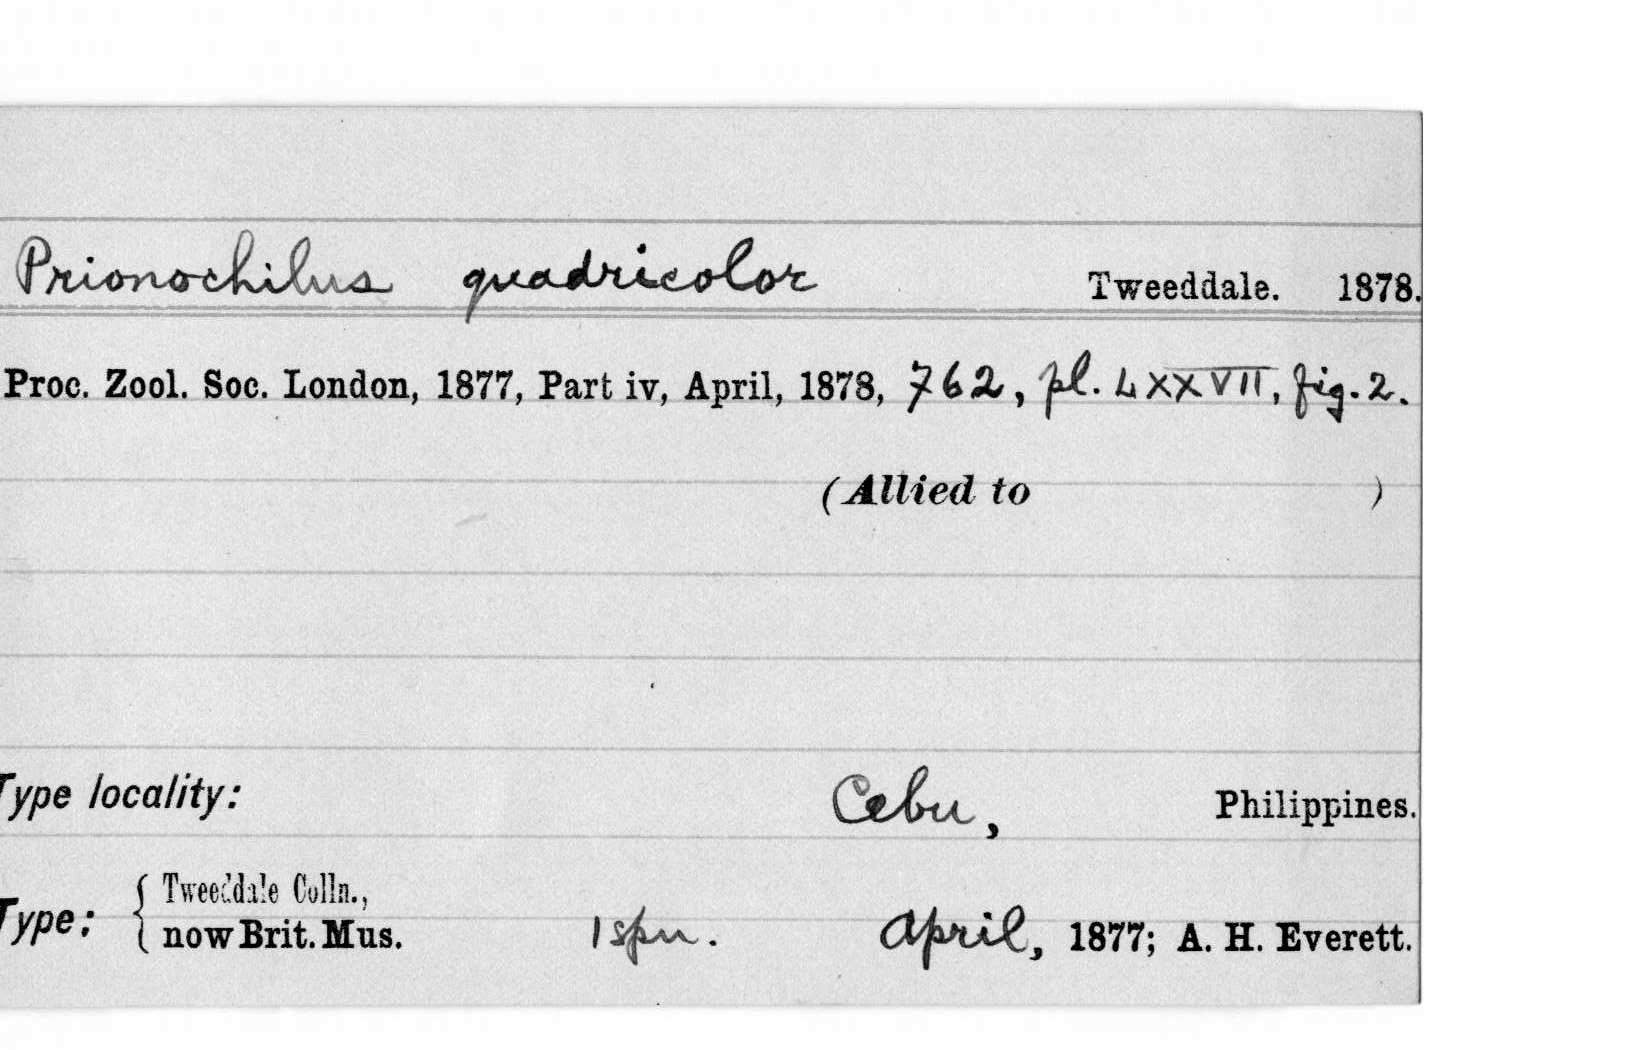 Prionochilus quadricolor Tweeddale. 1878.
Proc. Zool. Soc. London, 1877, Part iv, April, 1878, 762, pl. LXXVII, fig. 2.
(Allied to )
Type locality: Cebu, Philippines.
Tweeddale Colln.,
Type: { now Brit. Mus. 1 spn. April, 1877; A. H. Everett.